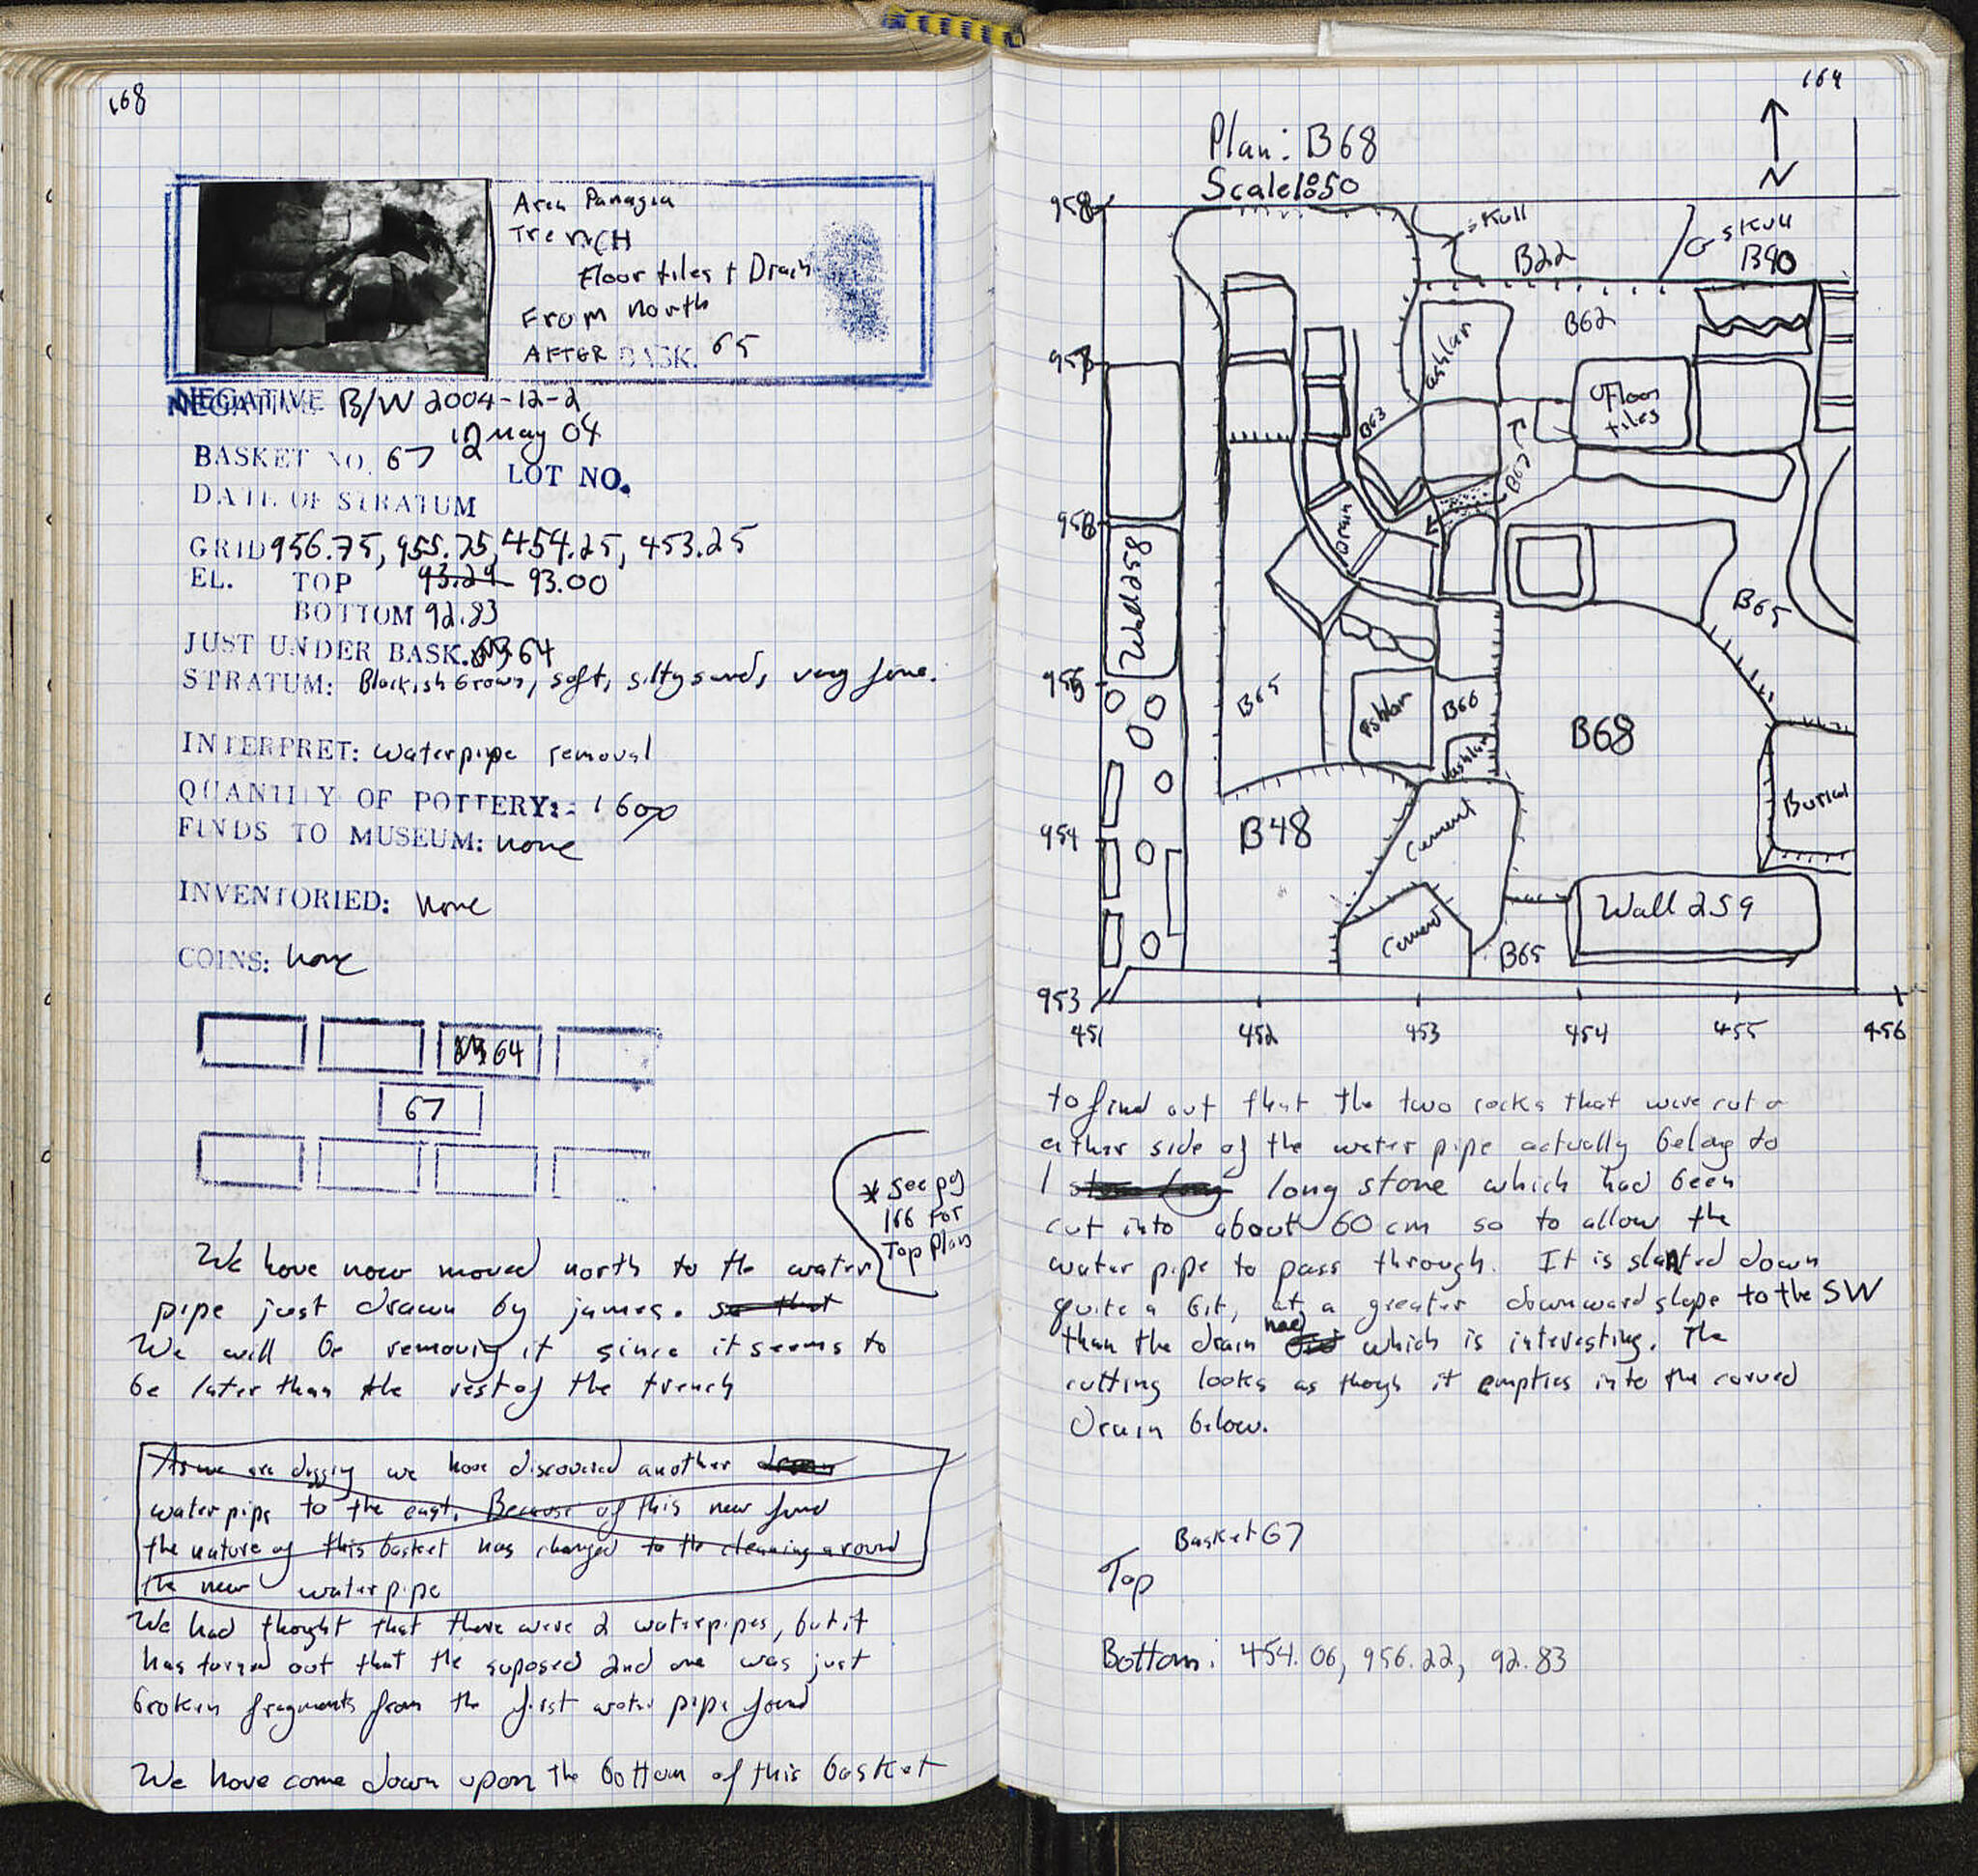 168
Area Panagia
TrenCH
Floor tiles + Drain
From north
AFTER BASK. 65
NEGATIVE B/W 2004-12-2
12 May 04
BASKET NO. 67
LOT NO.
DATE OF STRATUM
GRID 956.75, 955.75, 454.25, 453.25
EL. TOP 93.29 93.00
BOTTOM 92.83
JUST UNDER BASK. 64
STRATUM: Blackish brown, soft, silty sand, very fine.
INTERPRET: waterpipe removal
QUANTITY OF POTTERY:
FINDS TO MUSEUM: none
INVENTORIED: none
COINS: none
64
67
* see pg
166 for
Top Plan
We have now moved north to the water
pipe just drawn by james. so that
We will be removing it since it seems to
be later than the rest of the trench
As we are digging we have discovered another drain
water pipe to the east. Because of this new find
the nature of this basket has changed to the cleaning around
the new waterpipe
We had thought that there were 2 waterpipes, but it
has turned out that the suposed 2nd one was just
broken fragments from the first water pipe found
We have come down upon the bottom of this basket
169
Plan: B68
Scale 1:50
N
958
skull
B22
skull
B90
B62
ashlar
957
Floor
tiles
B63
B67
956
Drain
Wall 258
B65
955
B65
Ashlar
B66
B68
ashlar
Burial
B48
Cement
954
Wall 259
Cement
B65
953
451 452 453 454 455 456
to find out that the two rocks that were cut on
either side of the water pipe actually belong to
1 stone long long stone which had been
cut into about 60 cm so to allow the
water pipe to pass through. It is slanted down
quite a bit, at a greater downward slope to the SW
than the drain had which is interesting. The
cutting looks as thogh it empties into the curved
Drain below.
Basket 67
Top
Bottom: 454.06, 956.22, 92.83